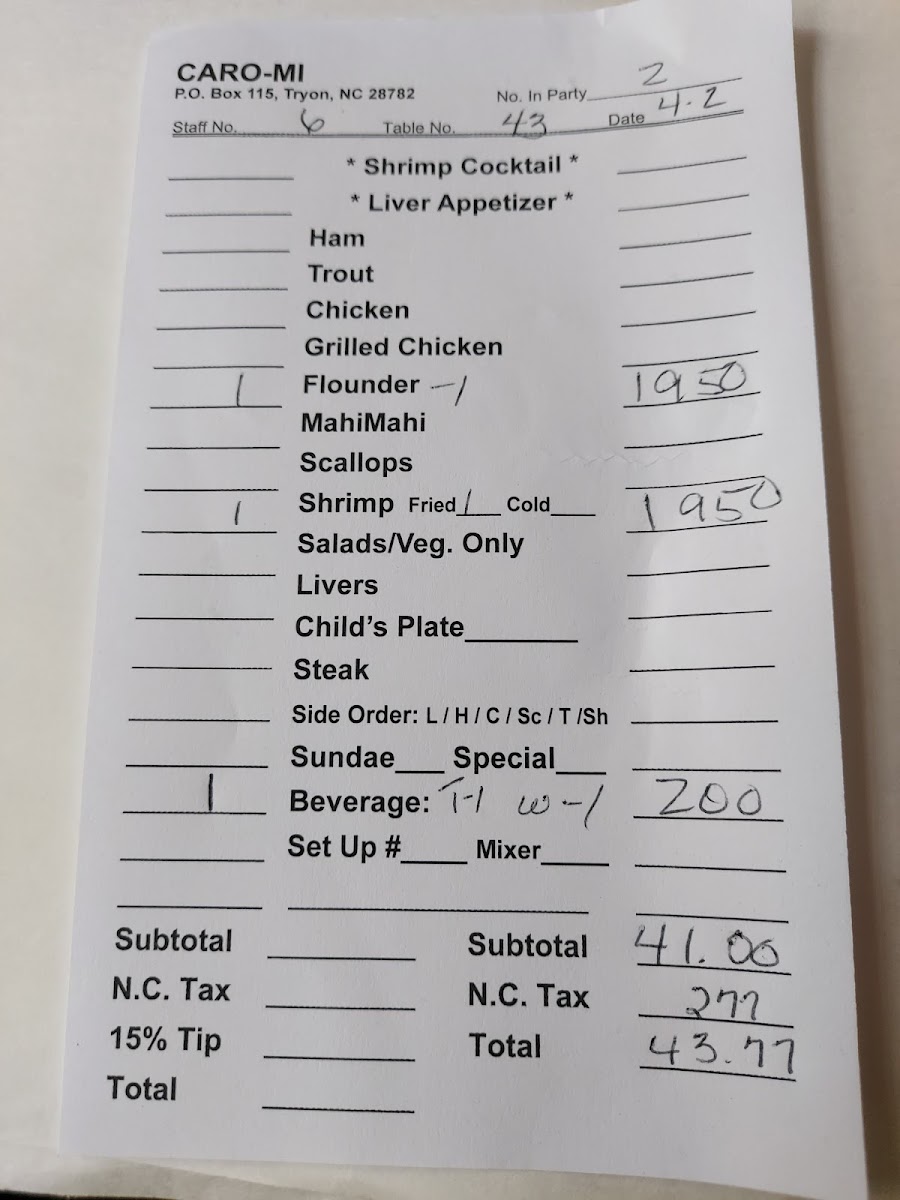 CARO-MI
P.O. Box 115, Tryon, NC 28782
No. In Party 2
Staff No. 6 Table No. 43 Date 4-2
* Shrimp Cocktail *
* Liver Appetizer *
Ham
Trout
Chicken
Grilled Chicken
1 Flounder -1 1950
MahiMahi
Scallops
1 Shrimp Fried 1 Cold 1950
Salads/Veg. Only
Livers
Child's Plate
Steak
Side Order: L / H / C / Sc / T /Sh
Sundae Special
1 Beverage: T-1 w-1 200
Set Up # Mixer
Subtotal Subtotal 41.00
N.C. Tax N.C. Tax 277
15% Tip Total 43.77
Total